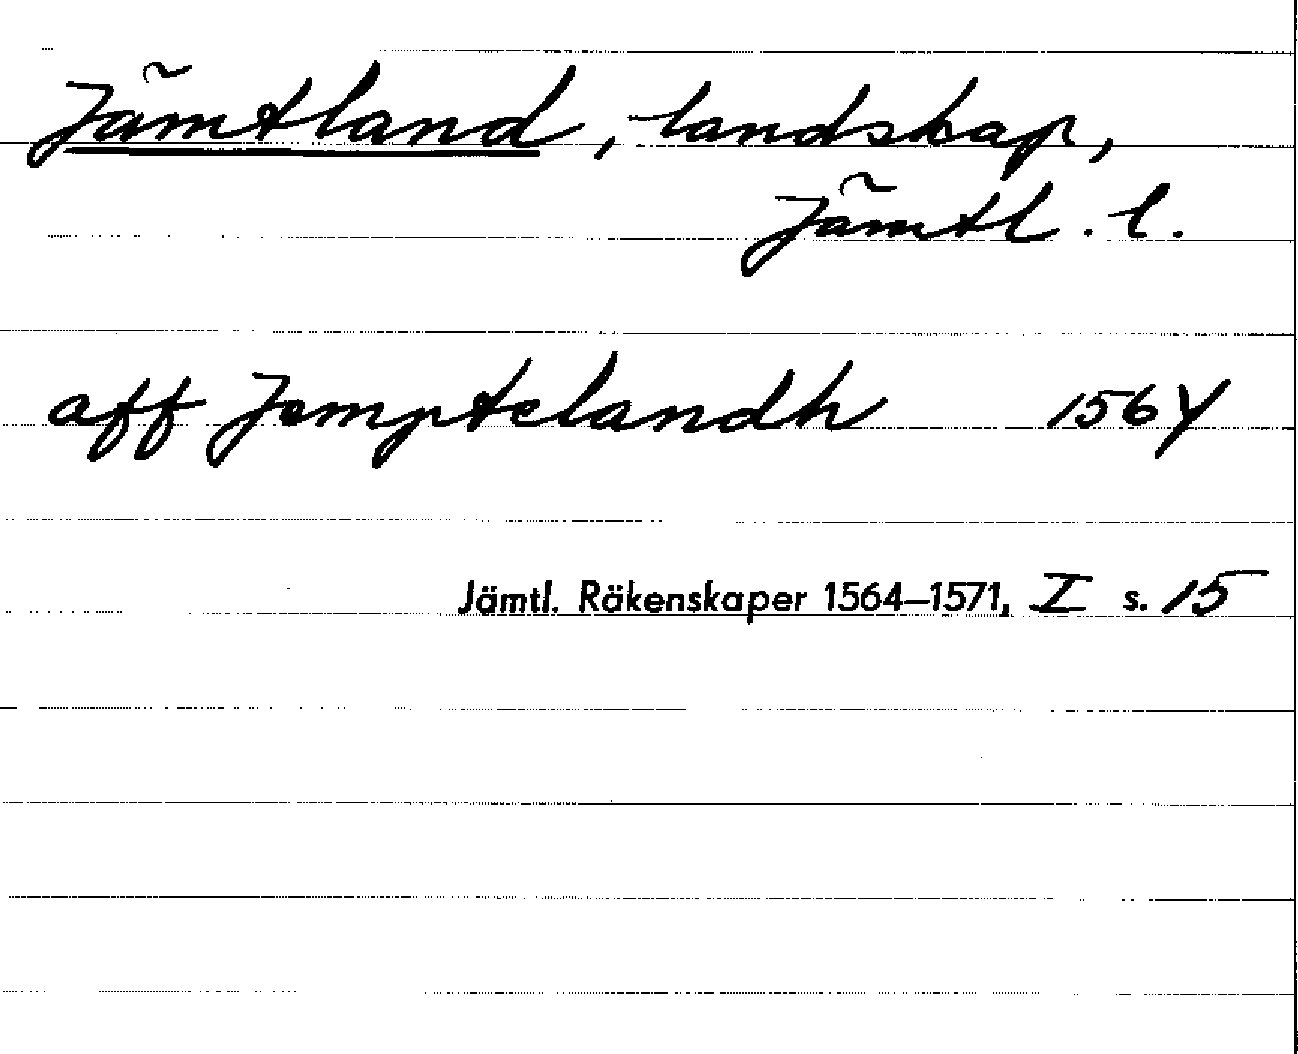 Jämtland, landskap,
Jämtl. l.
aff Jemptelandh 1564
Jämtl. Räkenskaper 1564–1571, I s. 15